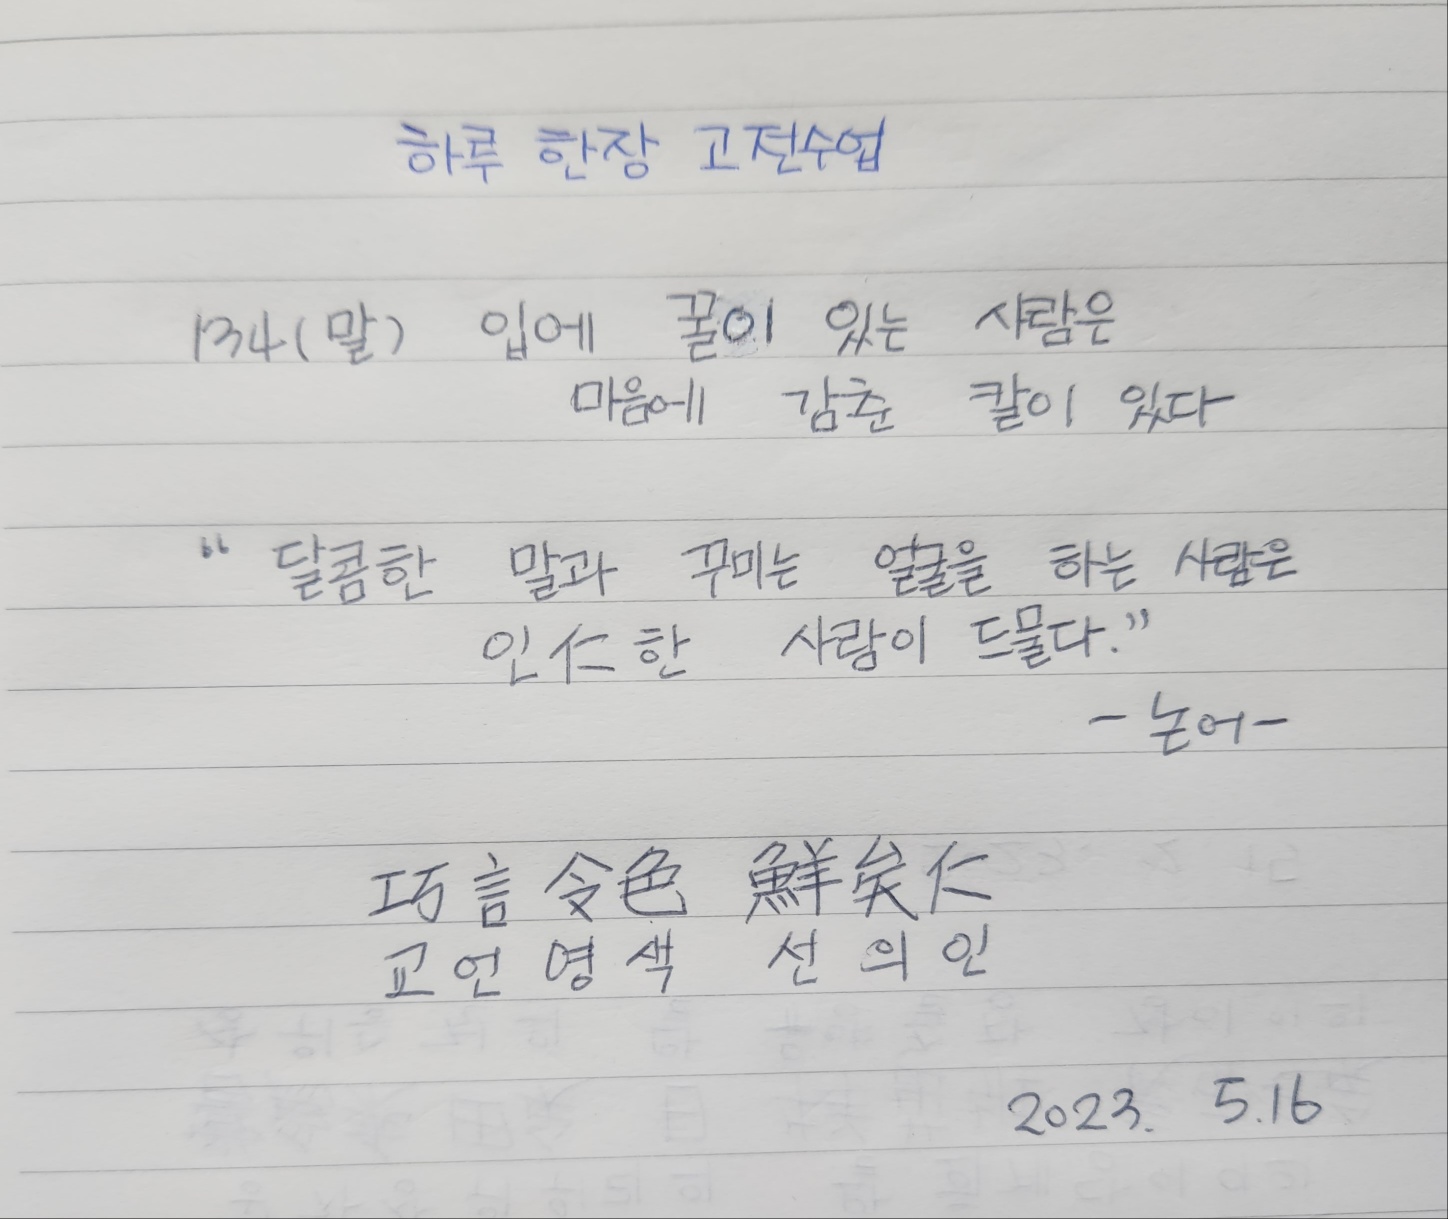 하루 한장 고전수업
134(말) 입에 꿀이 있는 사람은
마음에 감춘 칼이 있다
“달콤한 말과 꾸미는 얼굴을 하는 사람은
인仁한 사람이 드물다.”
-논어-
巧言令色 鮮矣仁
교언영색 선의인
2023. 5.16